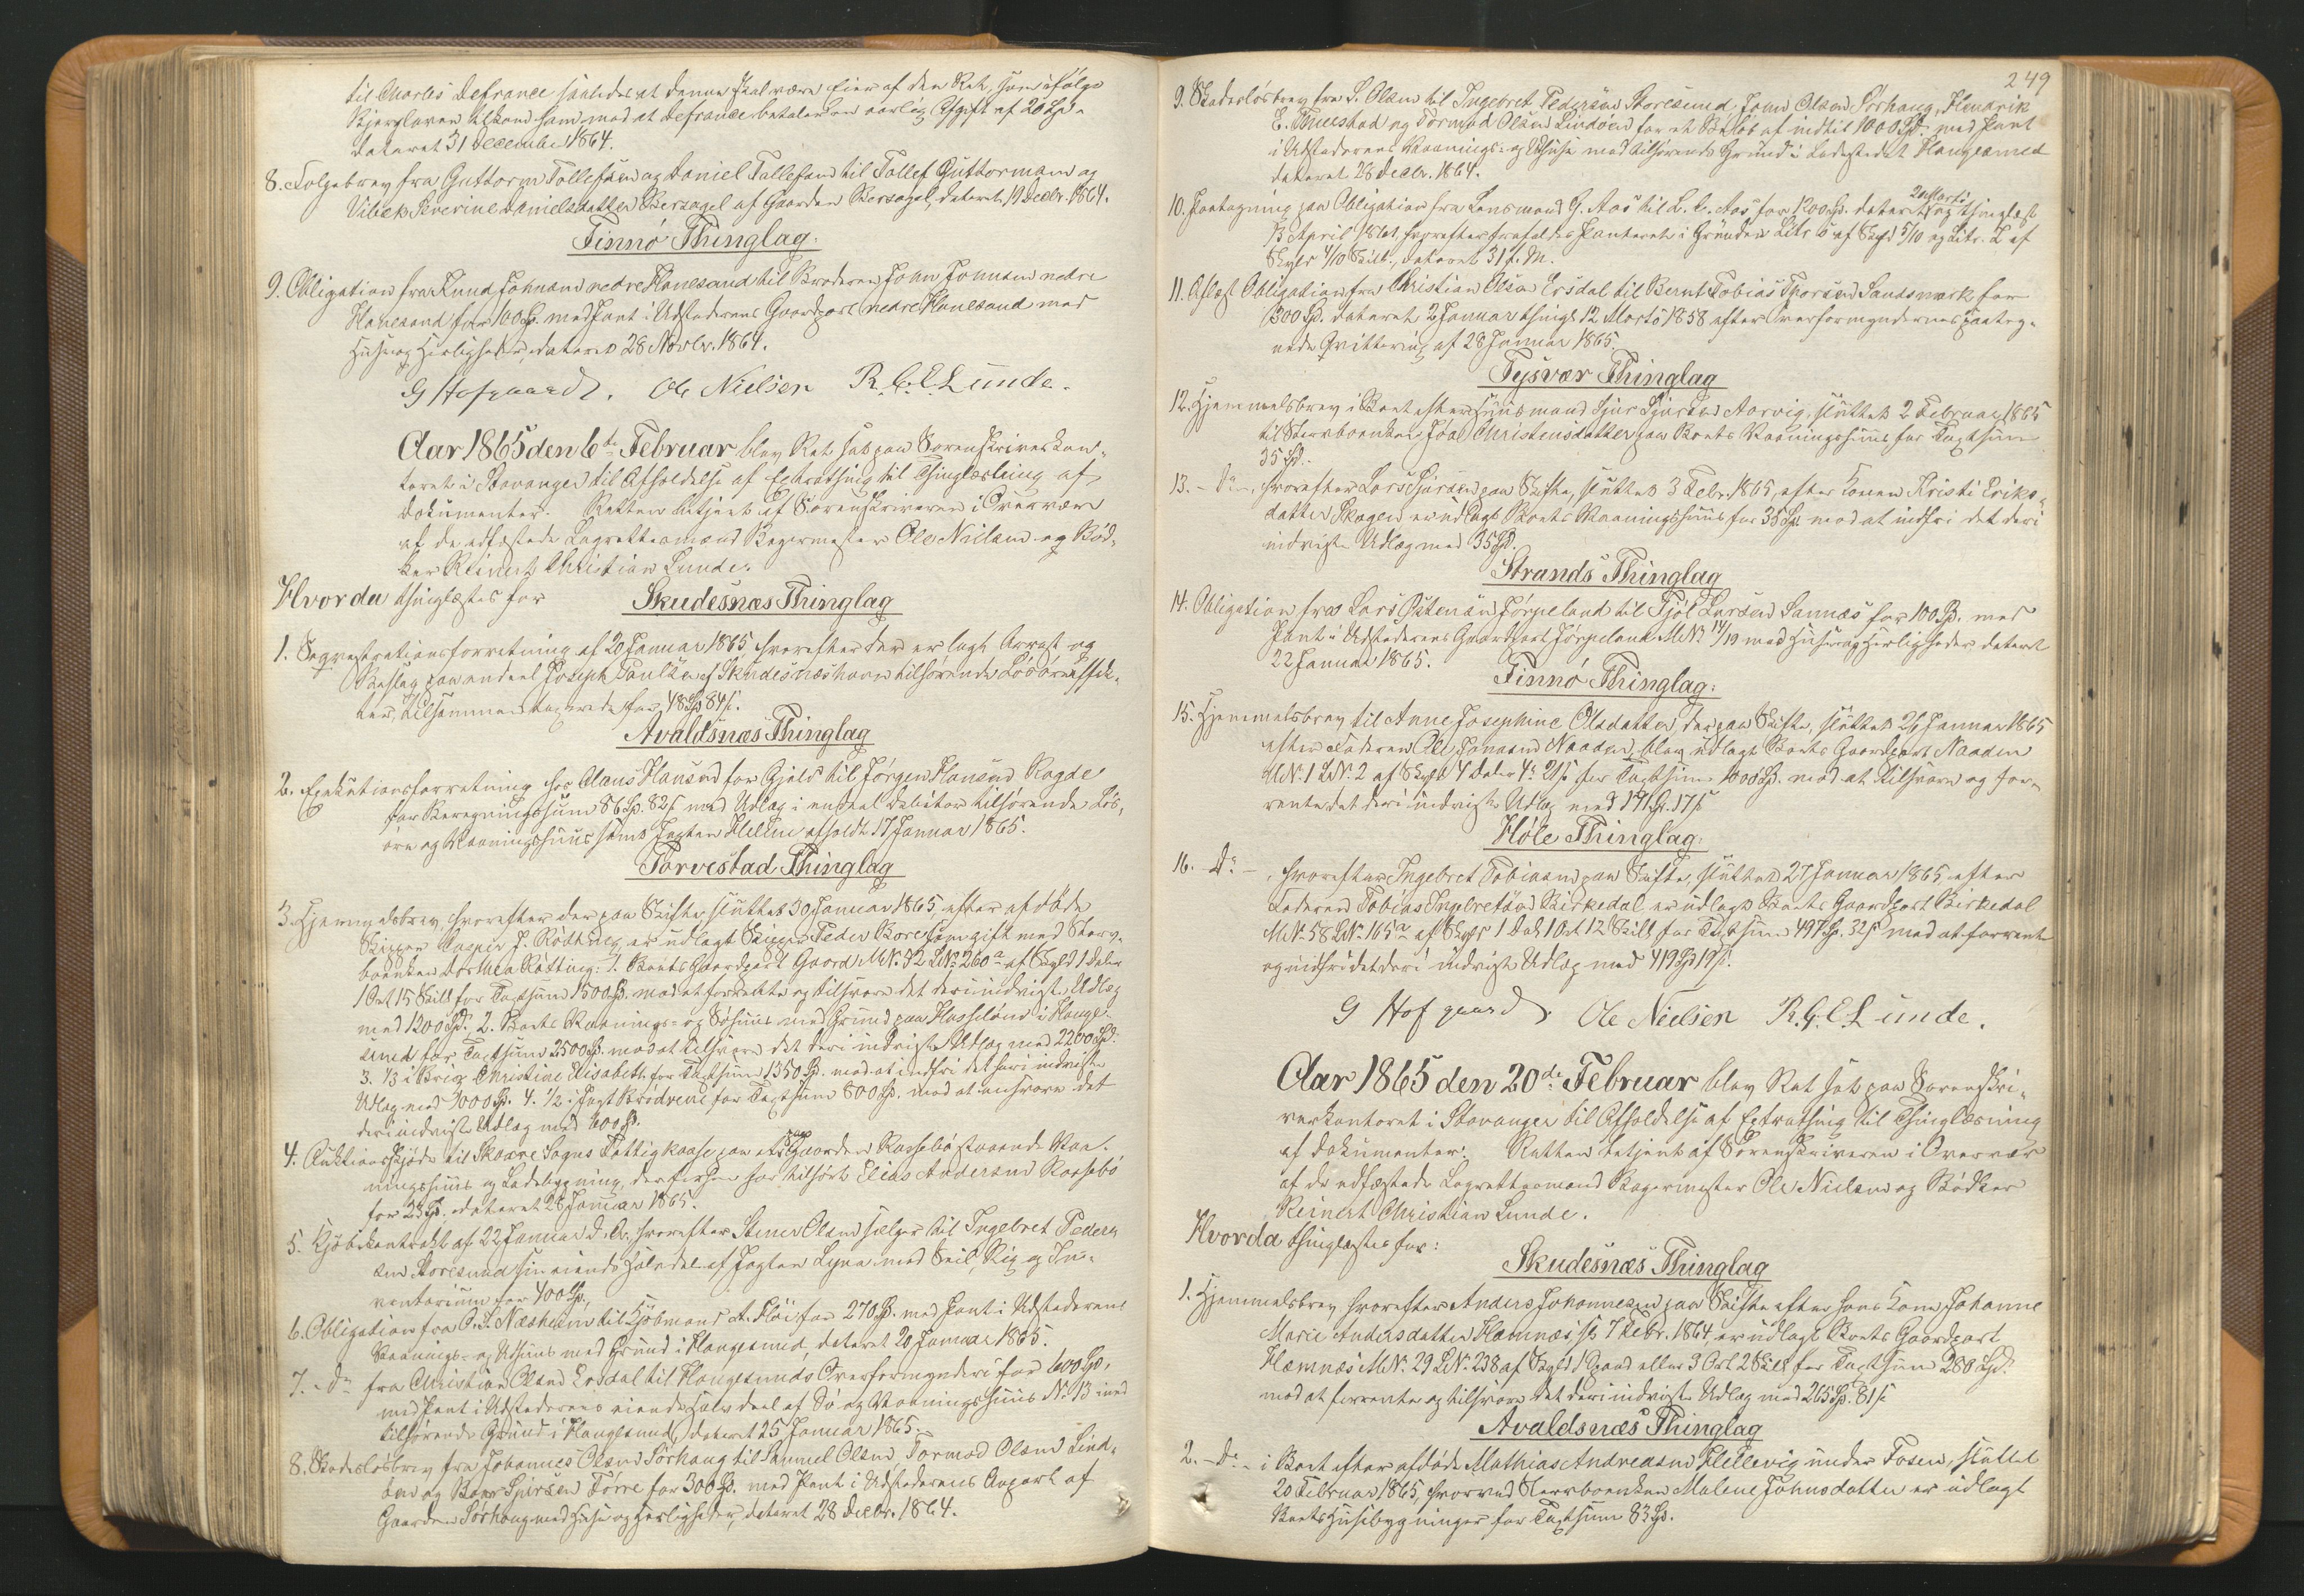 til Charles Defrance saaledes at denne skal være Eier af den Ret, som ifølge
Bjergloven tilkom ham mod at Defrance betaler en aarlig Afgift af 20 Spd.
dateret 31 December 1864.
8. Følgebrev fra Guttorm Tollefsen og Daniel Tollefsen til Tollef Guttormsen og
Vibeke Severine Danielsdatter Bersagel af Gaarden Bersagel, dateret 19 Decbr. 1864.
Finnø Thinglag.
9. Obligation fra Knud Johnsen nedre Hanesand til Broderen John Johnsen nedre
Hanesand for 100 Spd. med Pant i Udstederens Gaardpart nedre Hanesand med
Huse og Herligheder, dateret 28 Novbr. 1864.
G Hofgaard. Ole Nielsen R. C. E. Lunde.
Aar 1865 den 6te Februar blev Ret sat paa Sorenskriverkon-
toret i Stavanger til Afholdelse af Extrathing til Thinglæsning af
Dokumenter. Retten betjent af Sorenskriveren i Overvær
af de edfæstede Lagrettesmænd Bagermester Ole Nielsen og Bød-
ker Reinert Christian Lunde.
Hvorda thinglæstes for Skudesnæs Thinglag
1. Seqvestrationsforretning af 20 Januar 1865, hvorefter der er lagt Arrest og
Beslag paa endeel Joseph Paulsen af Skudesnæshavn tilhørende Løsøreeffek-
ter, tilsammen taxerede for 48 Spd 84 s.
Avaldsnæs Thinglag
2. Exekutionsforretning hos Claus Hansen for Gjeld til Jørgen Hansen Rogde
for Beregningssum 56 Spd. 82 s med Udlæg i endeel Debitor tilhørende Løs-
øre og Vaaningshuus samt Jagten Helene afholdt 17 Januar 1865.
Torvestad Thinglag
3. Hjemmelsbrev, hvorefter der paa Skifte, sluttet 30 Januar 1865, efter afdøde
Skipper Casper J. Røthing er udlagt Skipper Peder Kore som gift med Enke-
boenken Dorthea Røtting: 1. Boets Gaardpart Gaard M.N. 32 L.N. 260a af Skyld 1 Daler
1 Ort 15 Skill for Taxtsum 1500 Spd. mod at forrente og tilsvare det deri indviste Udlæg
med 1200 Spd. 2. Boets Vaanings- og Søhuus med Grund paa Hasseløen i Hauge-
sund for Taxtsum 2500 Spd. mod at tilsvare det deri indviste Udlæg med 2200 Spd.
3. 1/3 i Brig Christine Elisabeth for Taxtsum 1350 Spd. mod at indfri det heri indviste
Udlæg med 1000 Spd. 4. 1/2 i Jagt Brødrene for Taxtsum 800 Spd. mod at ansvare det
deri indviste Udlæg med 600 Spd.
4. Auktionsskjøde til Skaare Sogns Fattigkasse paa et paa Gaarden Rossebø staaende Vaa-
ningshuus og Ladebygning, der forhen har tilhørt Elias Andersen Rossebø
for 23 Spd. dateret 28 Januar 1865.
5. Kjøbekontrakt af 22 Januar d. A., hvorefter Steiner Olsen sælger til Ingebret Peder-
sen Storesund sin eiende Halvdel af Jagten Lyna med Seil, Rig og In-
ventarium for 400 Spd.
6. Obligation fra O. S. Næsheim til Kjøbmand A. Fløi for 270 Spd. med Pant i Udstederens
Vaanings- og Uthuus med Grund i Haugesund, dateret 20 Januar 1865.
7. - Do fra Christian Olsen Ersdal til Haugesunds Overformynderi for 600 Spd.
med Pant i Udstederens eiende Halvdeel af Sø- og Vaaningshuus No 13 med
tilhørende Grund i Haugesund, dateret 25 Januar 1865.
8. Skadesløsbrev fra Johannes Olsen Sørhaug til Samuel Olsen, Tormod Olsen Lind-
øen og Baar Sjursen Førre for 300 Spd. med Pant i Udstederens Anpart af
Gaarden Sørhaug med Huse og Herligheder, dateret 28 Decbr. 1864.
249
9. Skadesløsbrev fra S. Olsen til Ingebret Pedersen Storesund, John Olsen Sørhaug, Hendrik
E. Thuestad og Tormod Olsen Lindøen for et Beløb af indtil 1000 Spd. med Pant
i Udstederens Vaanings- og Søhuse med tilhørende Grund i Ladestedet Haugesund
dateret 28 Decbr. 1864.
10. Paategning paa Obligation fra Lensmand G. Aas til L. C. Aas for 1200 Spd. dateret 20 Marts og thinglæst
13 April 1861, hvorefter frafaldes Panteret i Grunden Litr. o af Skyld 5/10 og Litr. L af
Skyld 4/10 Skill., dateret 31 f. M.
11. Aflæst Obligation fra Christian Olsen Ersdal til Bernt Tobias Thorsen Sandsmark for
1300 Spd. dateret 2 Januar thingl. 12 Marts 1858 efter Overformyndernes paateg-
nede Qvittering af 28 Januar 1865.
Tysvær Thinglag
12. Hjemmelsbrev i Boet efter Huusmand Sjur Sjursen Aarvig, sluttet 2 Februar 1865
til Sterboenken Joal Christensdatter paa Boets Vaaningshuus for Taxtsum
35 Spd.
13. - Do -, hvorefter Lars Sjursen paa Skifte, sluttet 3 Febr. 1865, efter Konen Kristi Eriks-
datter Skogen er udlagt Boets Vaaningshuus for 35 Spd mod at indfri det deri
indviste Udlæg med 35 Spd.
Strands Thinglag
14. Obligation fra Lars Østensen Jørpeland til Tjøl Larsen Sannæs for 100 Spd. med
Pant i Udstederens Gaardpart Jørpeland M.N. 14/19 med Huse og Herligheder dateret
22 Januar 1865.
Finnø Thinglag:
15. Hjemmelsbrev til Anne Josephine Olsdatter, der paa Skifte, sluttet 26 Januar 1865
efter Faderen Ole Jonasen Naaden blev udlagt Boets Gaardpart Naaden
M.N. 1 L.N. 2 af Skyld 4 Daler 4 21 s for Taxtsum 1000 Spd. mod at tilsvare og for-
rente det deri indviste Udlæg med 171 Spd. 17 s
Høle Thinglag:
16. - Do -, hvorefter Ingebret Tobiasen paa Skifte, sluttet 27 Januar 1865, efter
Faderen Tobias Ingebretsen Birkedal er udlagt Boets Gaardpart Birkedal
M.N. 58 L.N. 165a af Skyld 1 Dal. 1 Ort 12 Skill. for Taxtsum 497 Spd. 32 s mod at forrente
og indfri det deri indviste Udlæg med 419 Spd 19 s.
G Hofgaard. Ole Nielsen R. C. E. Lunde.
Aar 1865 den 20de Februar blev Ret sat paa Sorenskri-
verkontoret i Stavanger til Afholdelse af Extrathing til Thinglæsning
af Dokumenter. Retten betjent af Sorenskriveren i Overvær
af de edfæstede Lagrettesmænd Bagermester Ole Nielsen og Bødker
Reinert Christian Lunde.
Hvorda thinglæstes for:
Skudesnæs Thinglag
1. Hjemmelsbrev, hvorefter Anders Johannesen paa Skifte efter hans Kone Johanne
Marie Andersdatter Hemnæs, sl. 7 Febr. 1864 er udlagt Boets Gaardpart
Hemnæs M.N. 29 L.N. 238 af Skyld 1 Spand eller 3 Ort 2 Skill for Taxtsum 280 Spd.
mod at forrente og tilsvare det deri indviste Udlæg med 265 Spd. 81 s
Avaldsnæs Thinglag
2. - Do - i Boet efter afdøde Mathias Andreasen Hellevig under Fosen, sluttet
20 Februar 1865, hvorved Sterboenken Malene Johnsdatter er udlagt
Boets Husebygninger for Taxtsum 83 Spd.